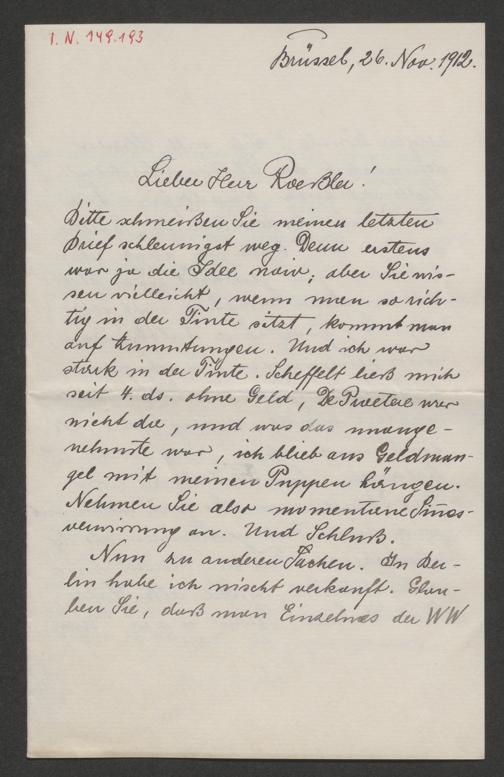 I. N. 149.193
Brüssel, 26. Nov. 1912.
Lieber Herr Roeßler!
Bitte schmeißen Sie meinen letzten
Brief schleunigst weg. Denn erstens
war ja die Idee naiv; aber Sie wis-
sen vielleicht, wenn man so rich-
tig in der Tinte sitzt, kommt man
auf Zumutungen. Und ich war
stark in der Tinte. Scheffelt ließ mich
seit 4. ds. ohne Geld, De Praetere war
nicht da, und was das unange-
nehmste war, ich blieb aus Geldman-
gel mit meinen Puppen hängen.
Nehmen Sie also momentane Sinns-
verwirrung an. Und Schluß.
Nun zu anderen Sachen. In Ber-
lin habe ich nischt verkauft. Glau-
ben Sie, daß man Einzelnes der WW